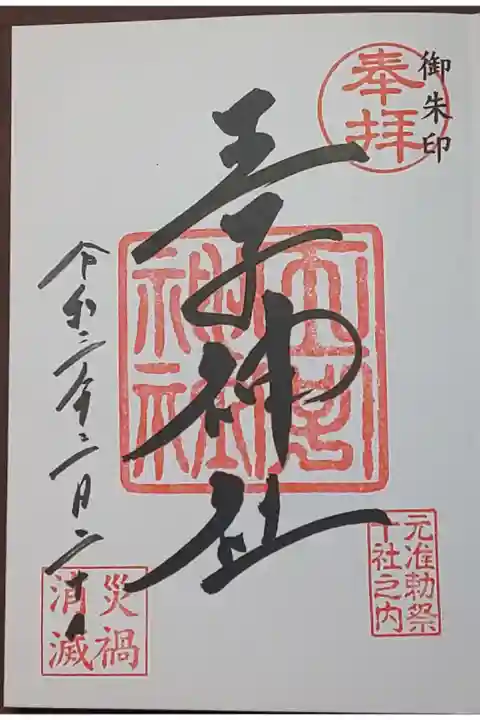 御朱印
奉拝
王子神社
元准勅祭
十社之内
令和三年三月二十
災禍
消滅